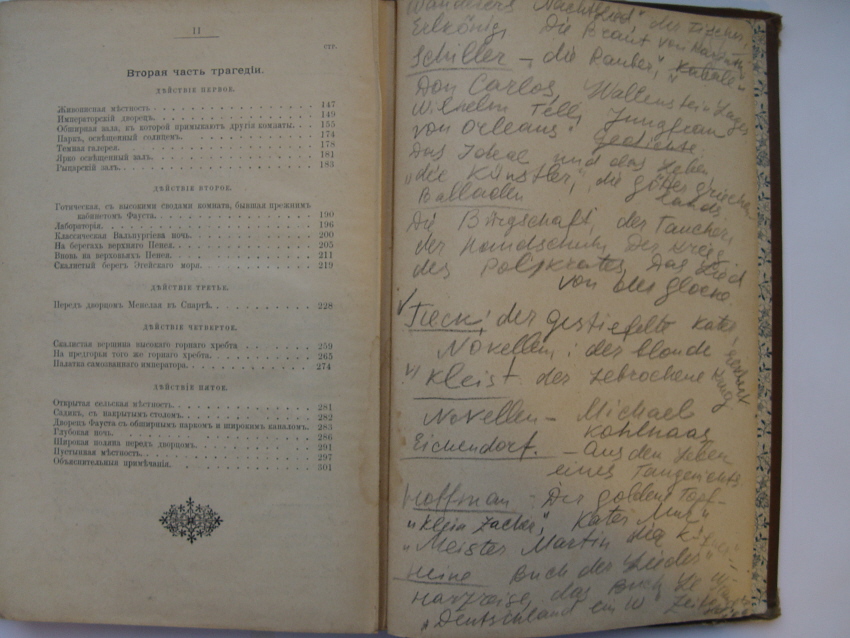 II
стр.
Вторая часть трагедіи.
ДѢЙСТВІЕ ПЕРВОЕ.
Живописная мѣстность 147
Императорскій дворецъ. 149
Обширная зала, къ которой примыкаютъ другія комнаты. 155
Паркъ, освѣщенный солнцемъ. 174
Темная галерея. 178
Ярко освѣщенный залъ. 181
Рыцарскій залъ. 183
ДѢЙСТВІЕ ВТОРОЕ.
Готическая, съ высокими сводами комната, бывшая прежнимъ
кабинетомъ Фауста. 190
Лабораторія. 196
Классическая Вальпургіева ночь. 200
На берегахъ верхняго Пенея. 205
Вновь на верховьяхъ Пенея. 211
Скалистый берегъ Эгейскаго моря. 219
ДѢЙСТВІЕ ТРЕТЬЕ.
Передъ дворцомъ Менелая въ Спартѣ. 228
ДѢЙСТВІЕ ЧЕТВЕРТОЕ.
Скалистая вершина высокаго горнаго хребта 259
На предгорьи того же горнаго хребта. 265
Палатка самозваннаго императора. 274
ДѢЙСТВІЕ ПЯТОЕ.
Открытая сельская мѣстность. 281
Садикъ, съ накрытымъ столомъ. 282
Дворецъ Фауста съ обширнымъ паркомъ и широкимъ каналомъ. 283
Глубокая ночь. 286
Широкая поляна передъ дворцомъ. 291
Пустынная мѣстность. 297
Объяснительныя примѣчанія. 301
Wanderers Nachtlied" der Fischer,
Erlkönig, Die Braut von
Schiller – die Räuber, "Kabale"
Don Carlos, Wallenstein
Wilhelm Tell, Jungfrau
von Orleans. gedichte
Das Ideal und das Leben
"die Künstler", die götter griechen
lands,
Balladen
Die Bürgschaft, der Taucher,
der Handschuh, Der Ring
des Polykrates, Das Lied
von der glocke
Tieck: der gestiefelte Kater,
Novellen: der blonde
Kleist. der zebrochene Krug
Novellen – Michael
Kohlhaas
Eichendorf. – aus dem Leben
eines Taugenichts
Hoffman – Der goldene Topf –
"Klein Zaches", Kater Mur"
"Meister Martin
Heine Buch der Lieder"
Harzreise, das Buch Le
"Deutschland ein W